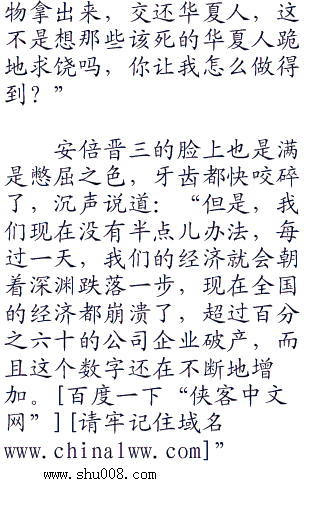 物拿出来，交还华夏人，这
不是想那些该死的华夏人跪
地求饶吗，你让我怎么做得
到？”
安倍晋三的脸上也是满
是憋屈之色，牙齿都快咬碎
了，沉声说道：“但是，我
们现在没有半点儿办法，每
过一天，我们的经济就会朝
着深渊跌落一步，现在全国
的经济都崩溃了，超过百分
之六十的公司企业破产，而
且这个数字还在不断地增
加。[百度一下“侠客中文
网”][请牢记住域名
www.china1ww.com]”
www.shu008.com